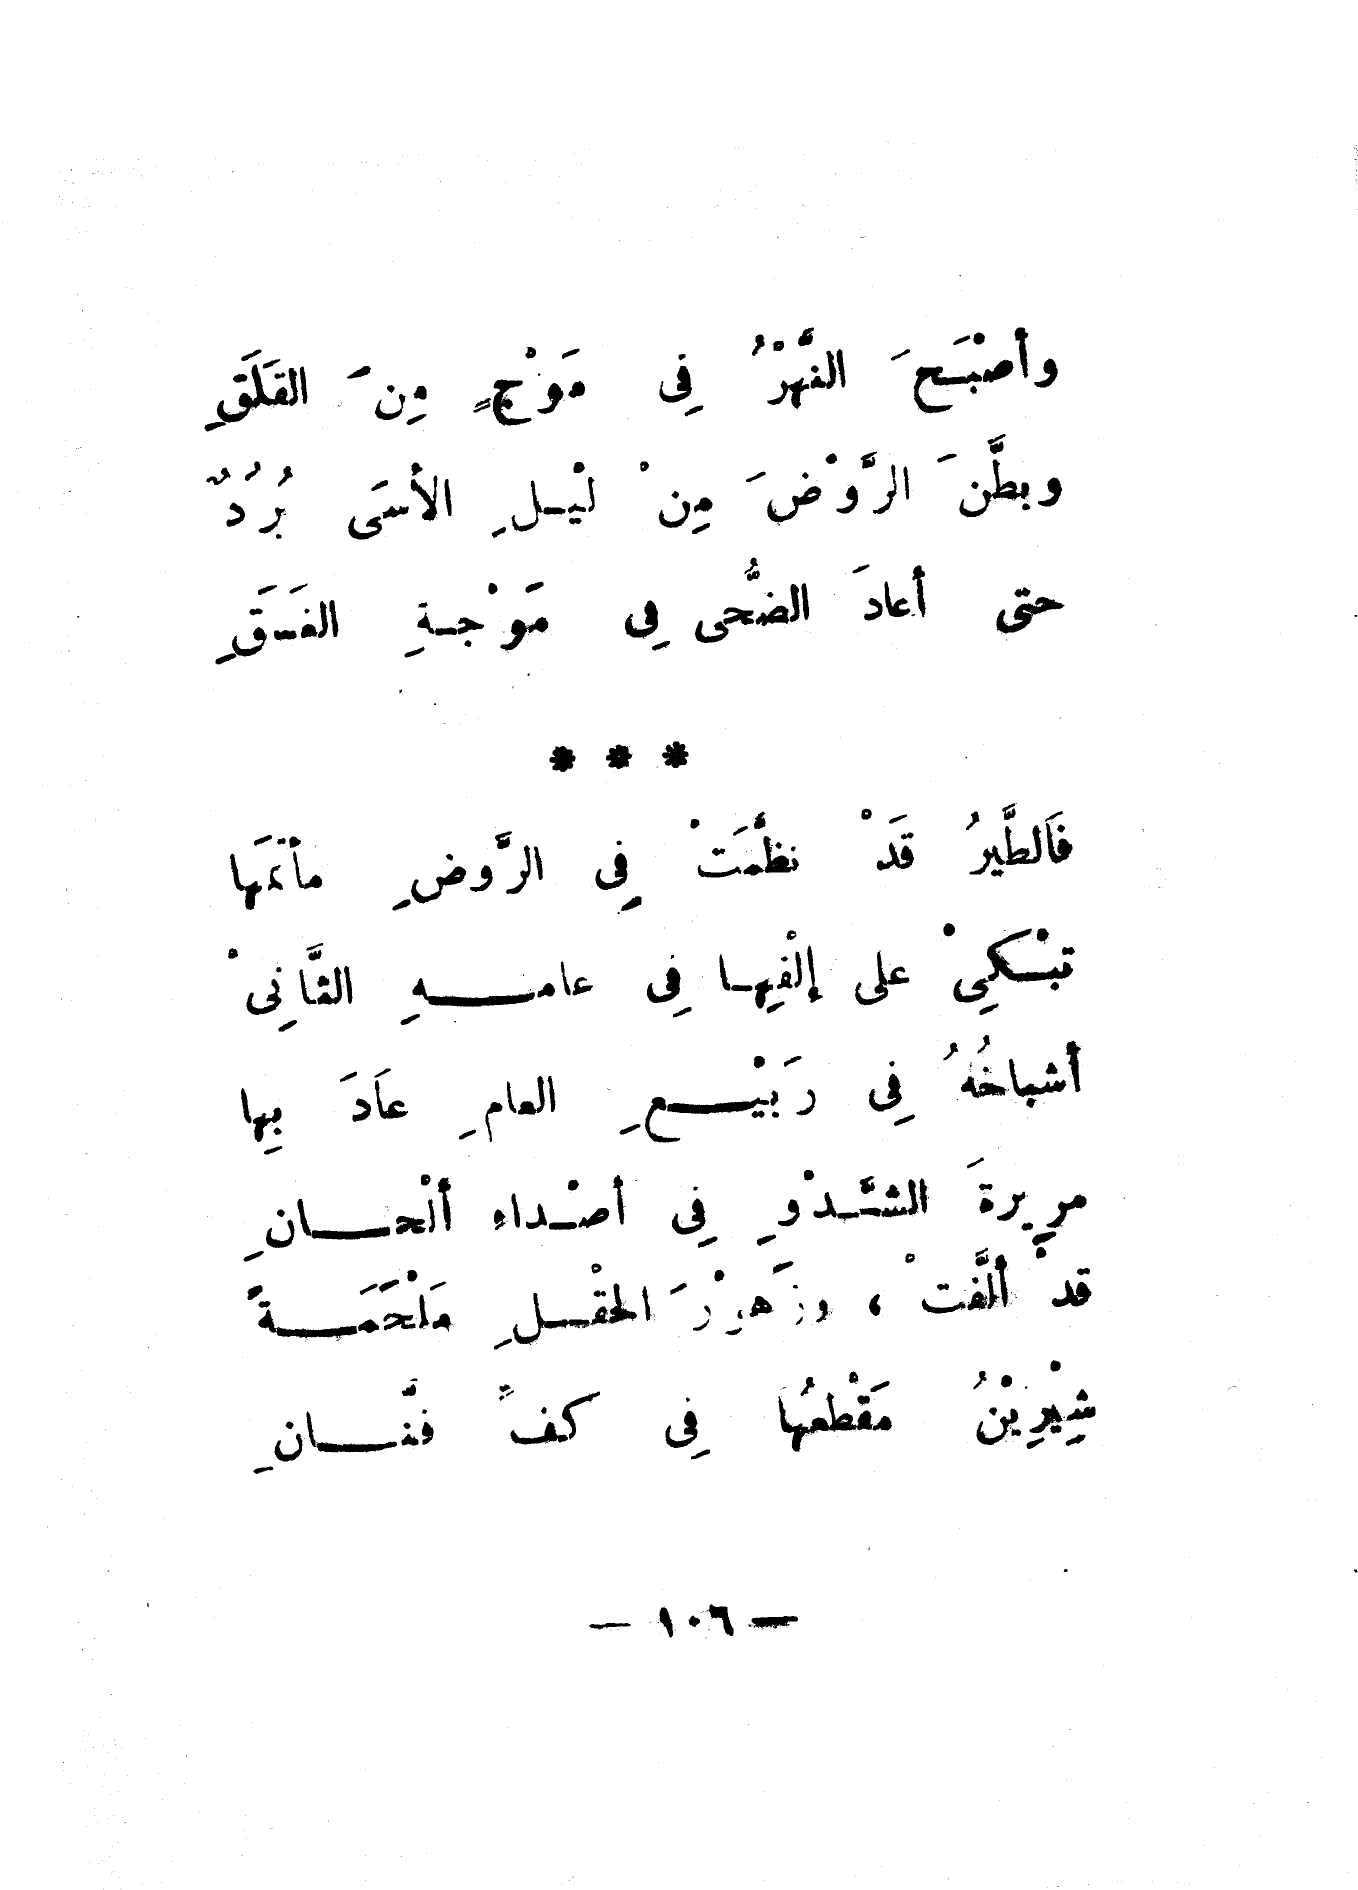 وأصْبَحَ النَّهْرُ فِى مَوْجٍ مِنَ القَلَقِ
وبطَّنَ الرَّوْضَ مِنْ ليْلِ الأسَى بُرُدٌ
حتى أعادَ الضُّحى فِى مَوْجةِ الغَسَقِ
* * *
فَالطَّيرُ قَدْ نظَّمَتْ فِى الرَّوضِ مأتمَها
تبْكىِْ على إلْفِها فِى عامهِ الثَّانِىْ
أشباخُهُ فِى رَبيْعِ العام عَادَ بِها
مرِيرةَ الشَّدْوِ فِى أصْداءِ ألْحانِ
قدْ ألَّفتْ ، وزَهْرَ الحقْلِ مَلْحَمَةً
شِيْرِيْنُ مَقْطعُها فِى كفِّ فنَّانِ
— ١٠٦ —